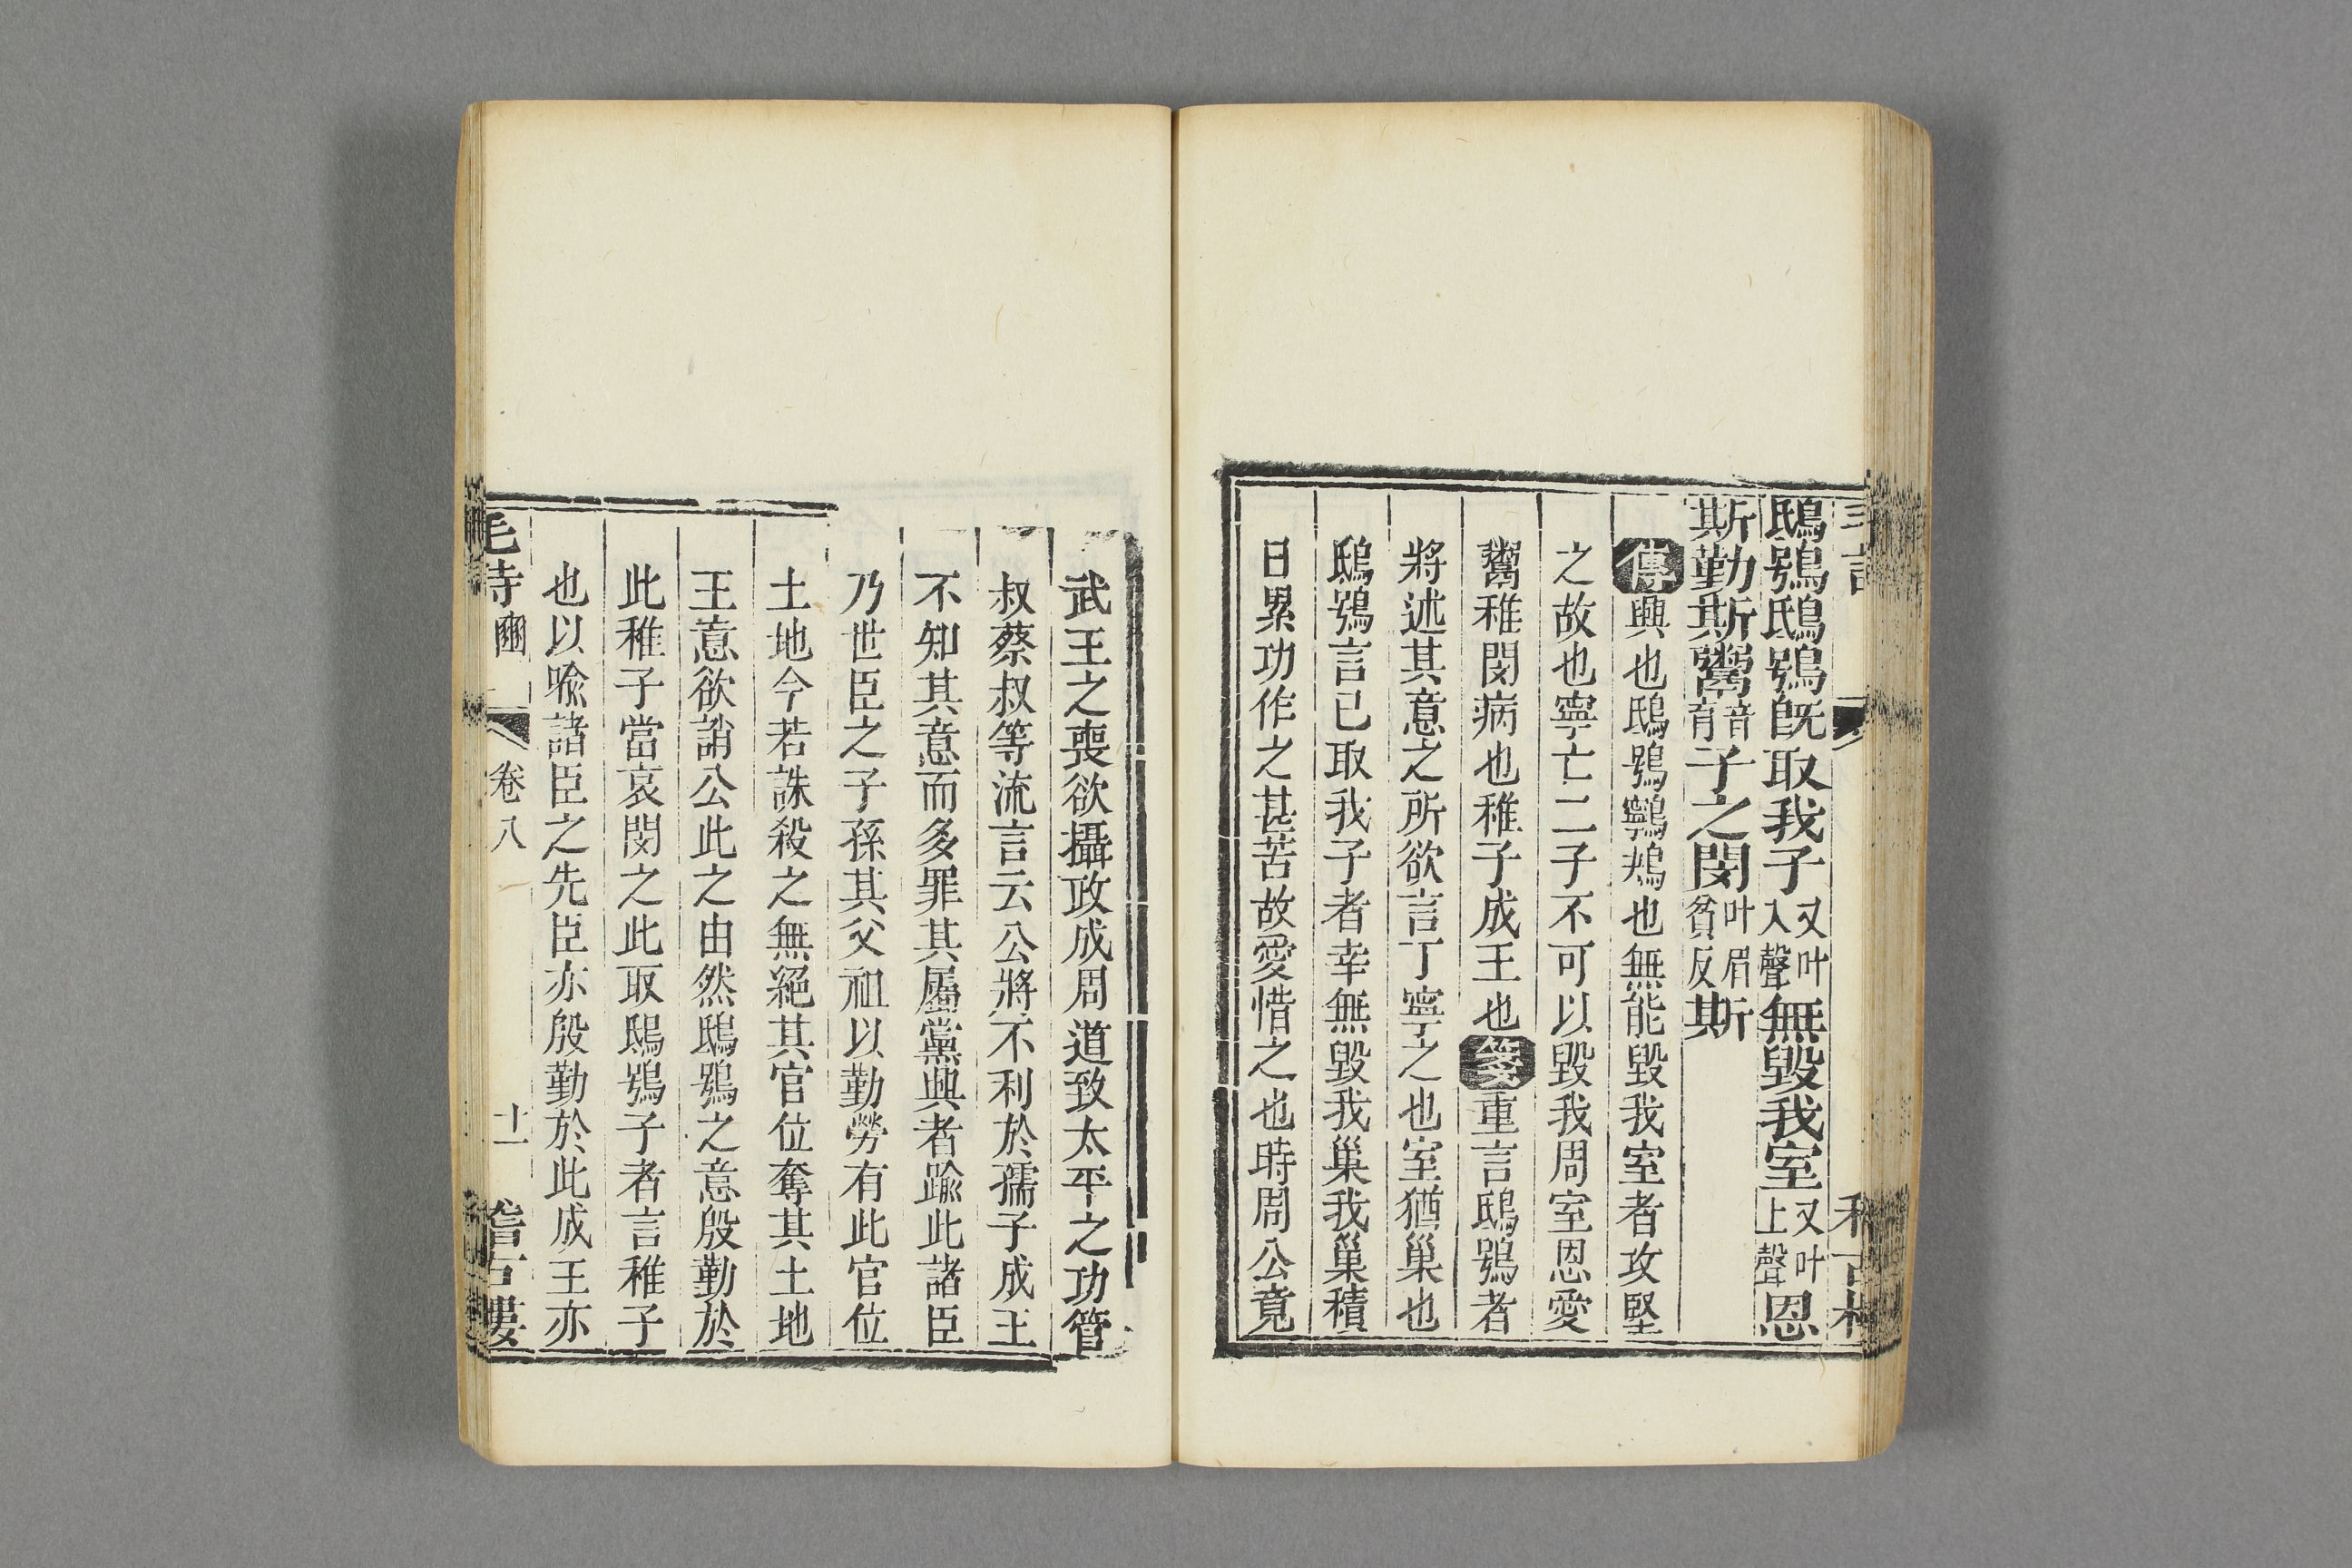 鴟鴞鴟鴞既取我子又叶入聲無毀我室又叶上聲恩
斯勤斯鬻音育子之閔叶眉貧反斯
傳興也鴟鴞鸋鴂也無能毀我室者攻堅
之故也寧亡二子不可以毀我周室恩愛
鬻稚閔病也稚子成王也箋重言鴟鴞者
將述其意之所欲言丁寧之也室猶巢也
鴟鴞言已取我子者幸無毀我巢我巢積
日累功作之甚苦故愛惜之也時周公竟
武王之喪欲攝政成周道致太平之功管
叔蔡叔等流言云公將不利於孺子成王
不知其意而多罪其屬黨興者踰此諸臣
乃世臣之子孫其父祖以勤勞有此官位
土地今若誅殺之無絕其官位奪其土地
王意欲誚公此之由然鴟鴞之意殷勤於
此稚子當哀閔之此取鴟鴞子者言稚子
也以喻諸臣之先臣亦殷勤於此成王亦
毛詩豳 卷八 十一 稽古樓